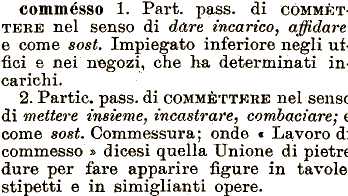 commésso 1. Part. pass. di COMMÉT-
TERE nel senso di dare incarico, affidare
e come sost. Impiegato inferiore negli uf-
fici e nei negozi, che ha determinati in-
carichi.
2. Partic. pass. di COMMÉTTERE nel senso
di mettere insieme, incastrare, combaciare; e
come sost. Commessura; onde « Lavoro di
commesso » dicesi quella Unione di pietre
dure per fare apparire figure in tavole
stipetti e in simiglianti opere.